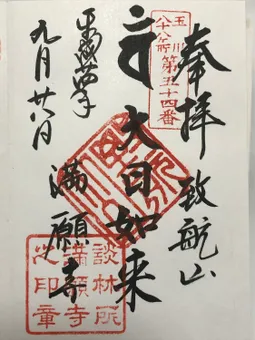 奉拝 致航山
玉川
八十八ヶ所
第五十四番
大日如来
満願寺
九月廿八日
談林所
滿願寺
之印章